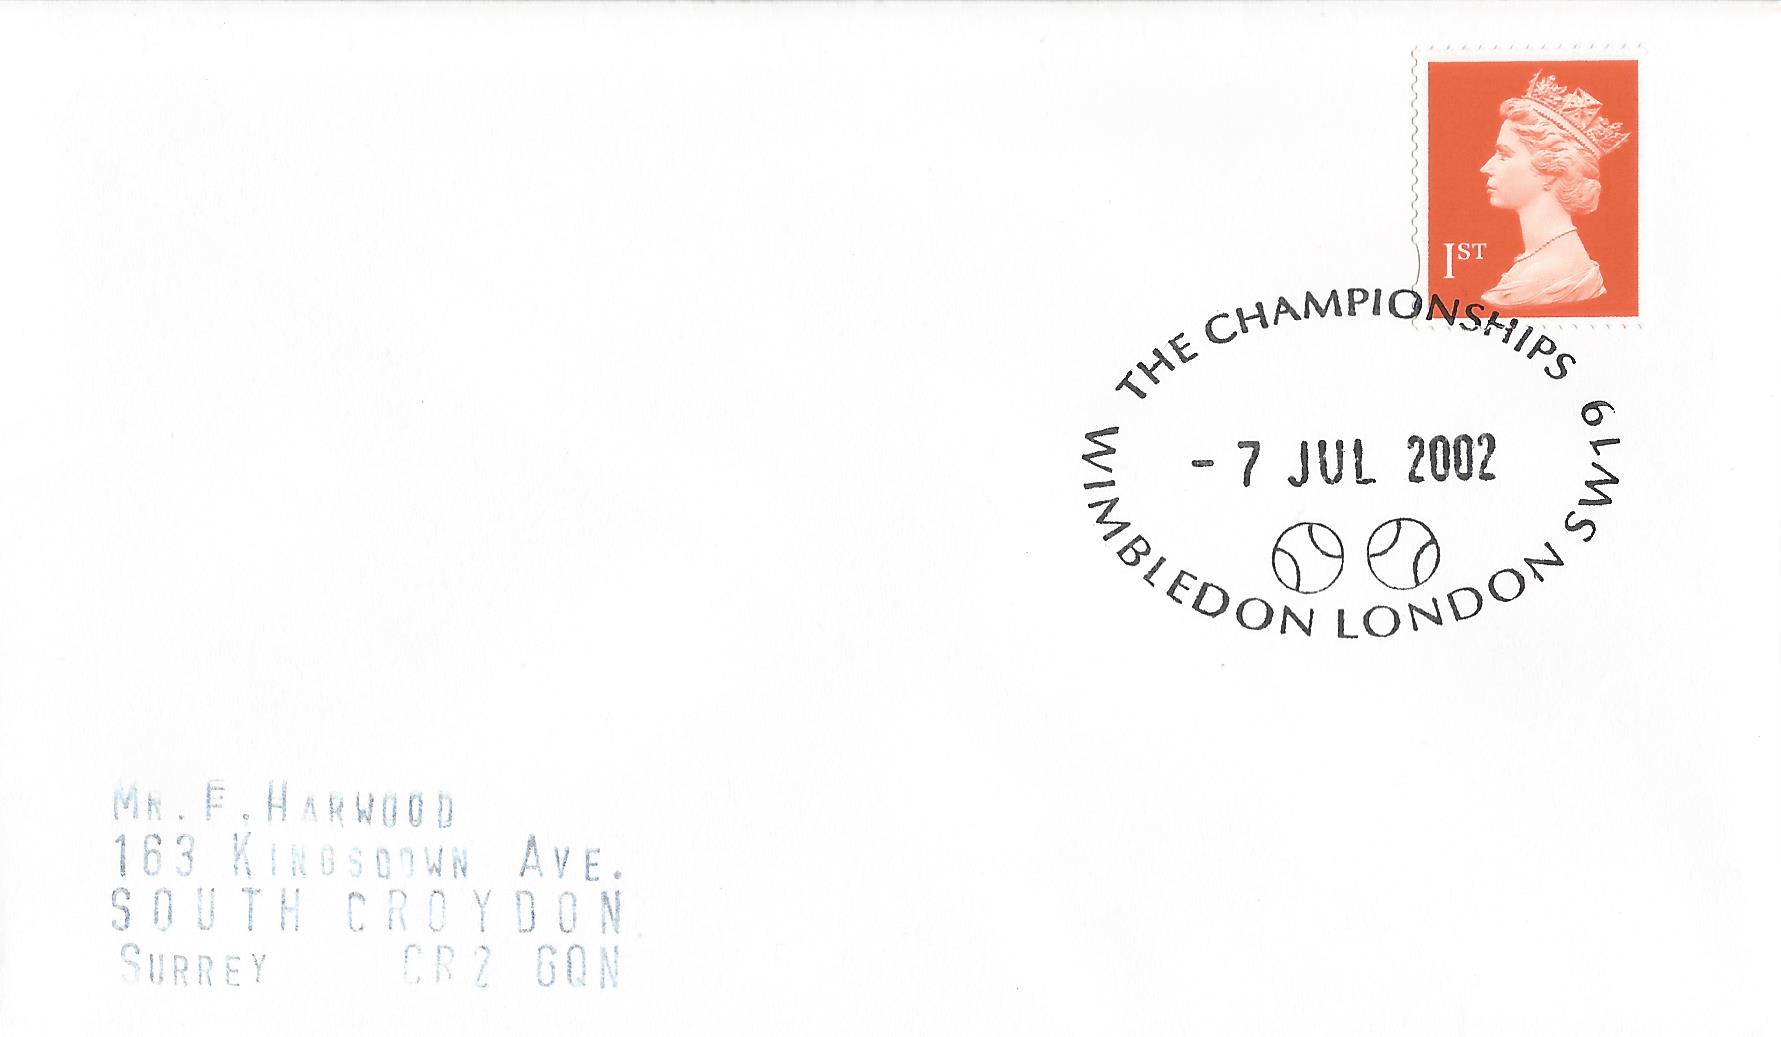 1ST
THE CHAMPIONSHIPS
- 7 JUL 2002
WIMBLEDON LONDON SW19
MR. F. HARWOOD
163 KINGSDOWN AVE.
SOUTH CROYDON
SURREY CR2 6QN